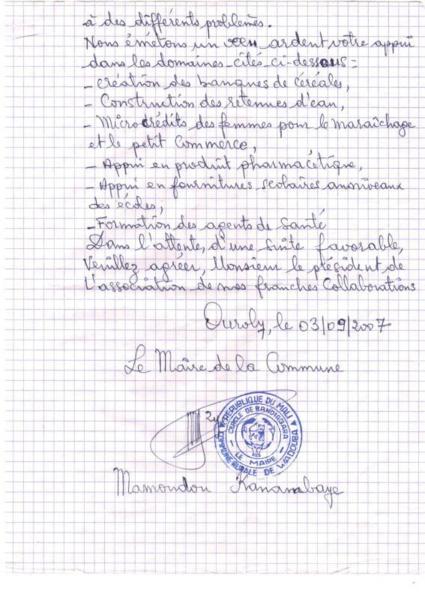 à des différents problèmes.
Nous émetons un vœu ardent votre appui
dans les domaines cités ci-dessous :
- création des banques de céréales,
- Construction des retenues d'eau,
- Micro crédits des femmes pour le maraîchage
et le petit Commerce,
- Appui en produit pharmacétique,
- Appui en fournitures scolaires auxniveaux
des écoles,
- Formation des agents de Santé
Dans l'attente, d'une suite favorable,
Veuillez agréer, Monsieur le président de
L'association de nos franches Collaborations
Ouroly, le 03/09/2007
Le Maire de la Commune
REPUBLIQUE DU MALI
CERCLE DE BANDIAGARA
LE MAIRE
COMMUNE RURALE DE WADOUBA
Mamoudou Kanambaye